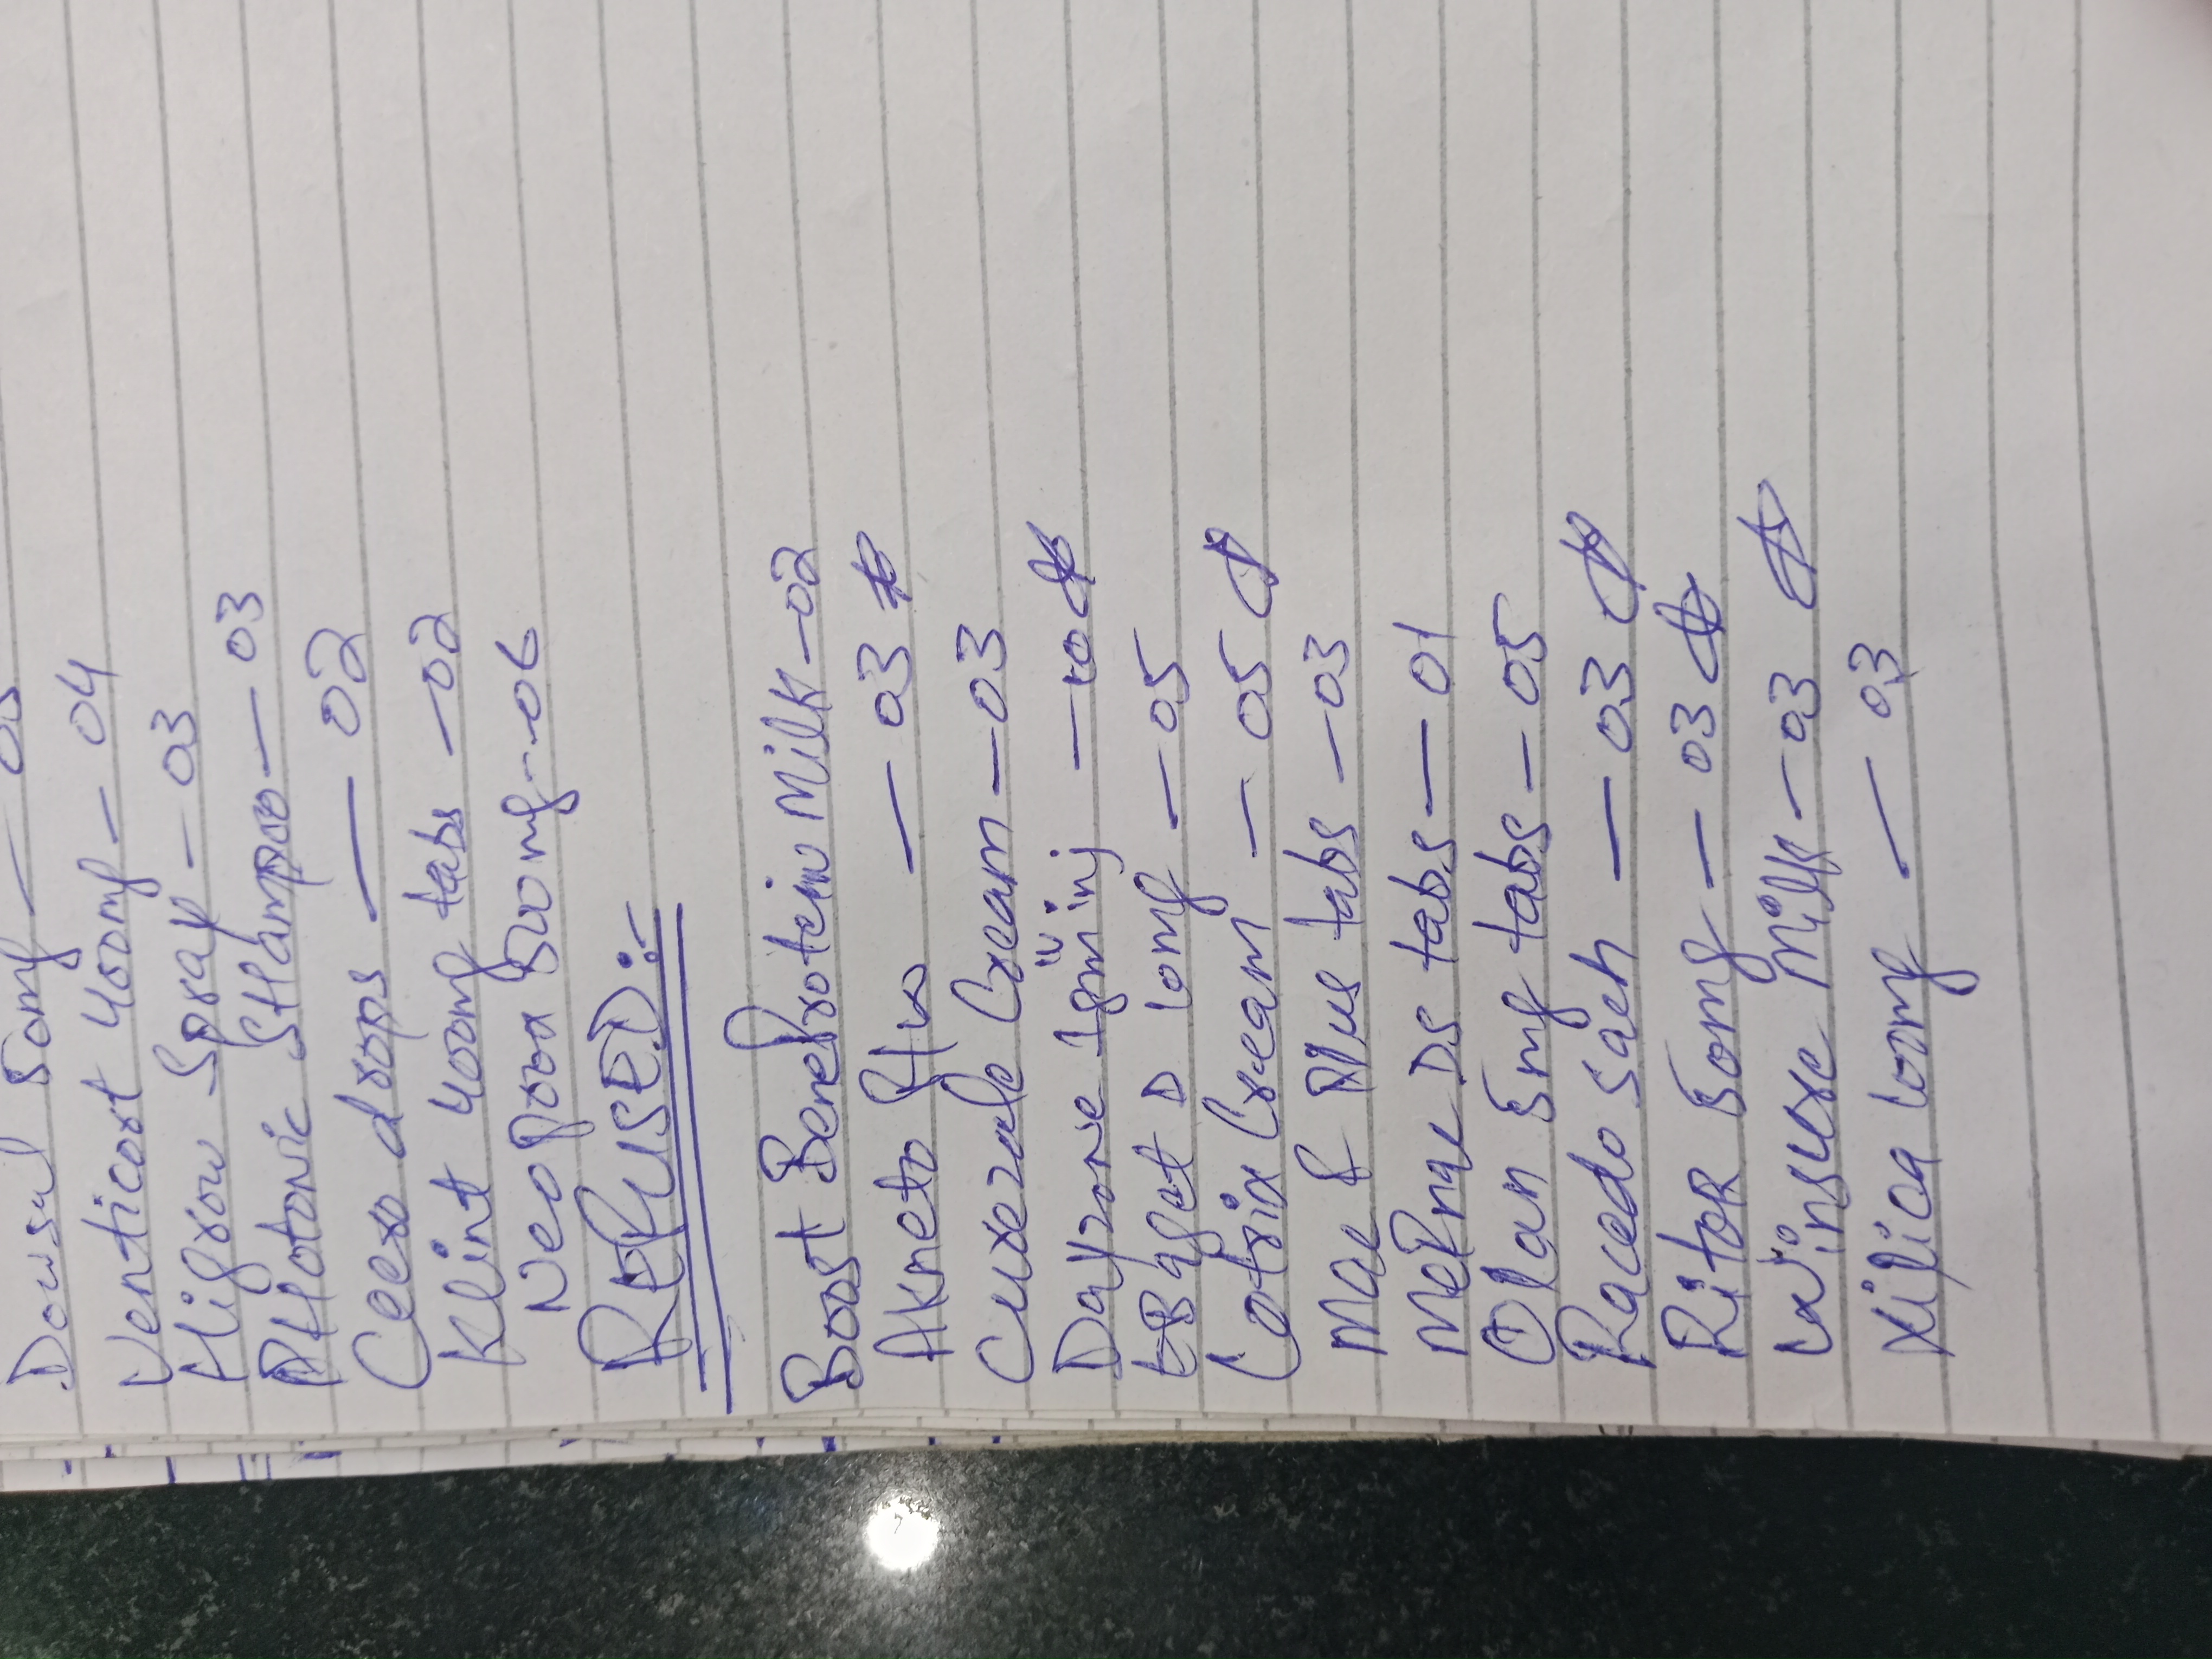 Dowsul 50mg — 03
Venticort 400mg — 04
Higrow Spray — 03
PHotonic SHampoo — 03
Cero drops — 02
Klint 400mg tabs — 02
Neopova 500mg — 06
REFUSED:-
Boost Beneprotein Milk — 02
Akneto — 03
Cream — 03
Dayzone 1gm inj — 10
D 10mg — 05
Cotrix Cream — 05
Mac Plus tabs — 03
DS tabs — 01
Olan 5mg tabs — 05
Racedo sach — 03
Ritor 50mg — 03
Winsure Milk — 03
Xilica — 03